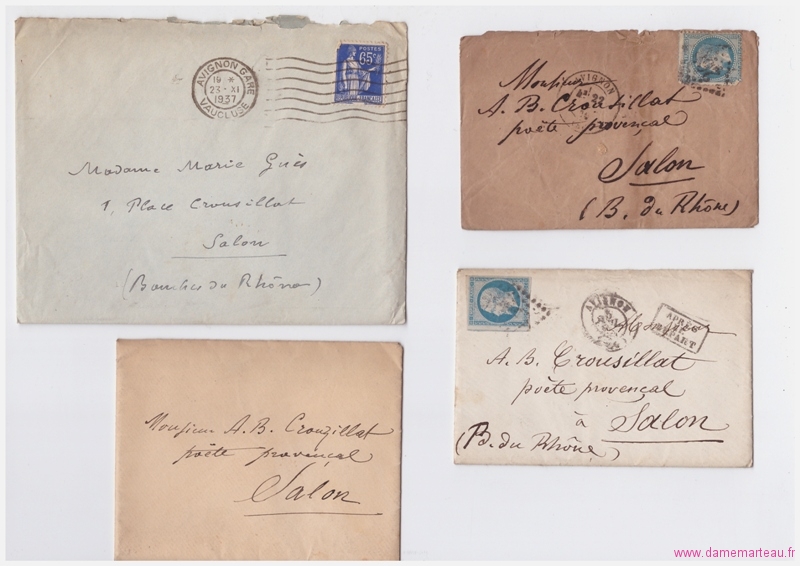 AVIGNON GARE
19 *
23 - XI
1937
VAUCLUSE
POSTES
65c
Madame Marie Guès
1, Place Crousillat
Salon
(Bouches du Rhône)
AVIGNON
Monsieur
A. B. Crousillat
poëte provençal
Salon
(B. du Rhône)
AVIGNON
APRÈS
LE
DÉPART
Monsieur
A. B. Crousillat
poëte provençal
à Salon
(B. du Rhône)
Monsieur A. B. Crouzillat
poëte provençal
Salon
www.damemarteau.fr